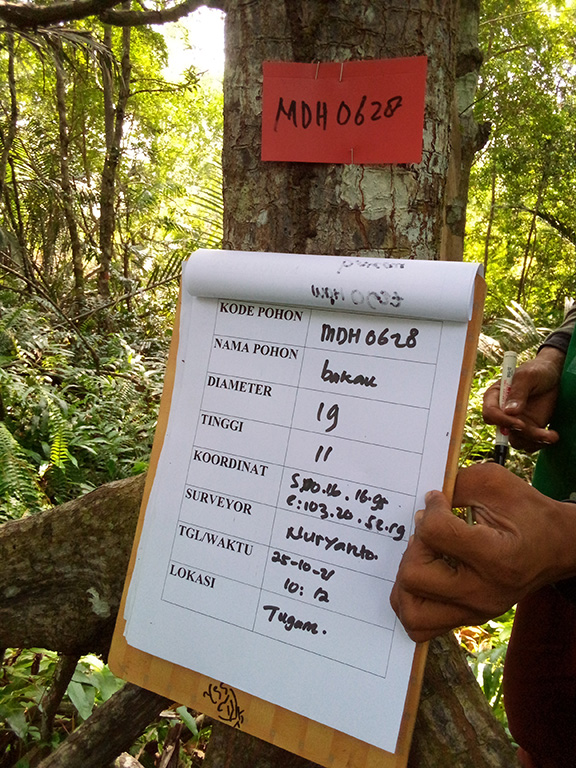 MDH0628
KODE POHON MDH0628
NAMA POHON bakau
DIAMETER 19
TINGGI 11
KOORDINAT
SURVEYOR Nuryanto.
TGL/WAKTU 25-10-21
10:12
LOKASI Tugam.